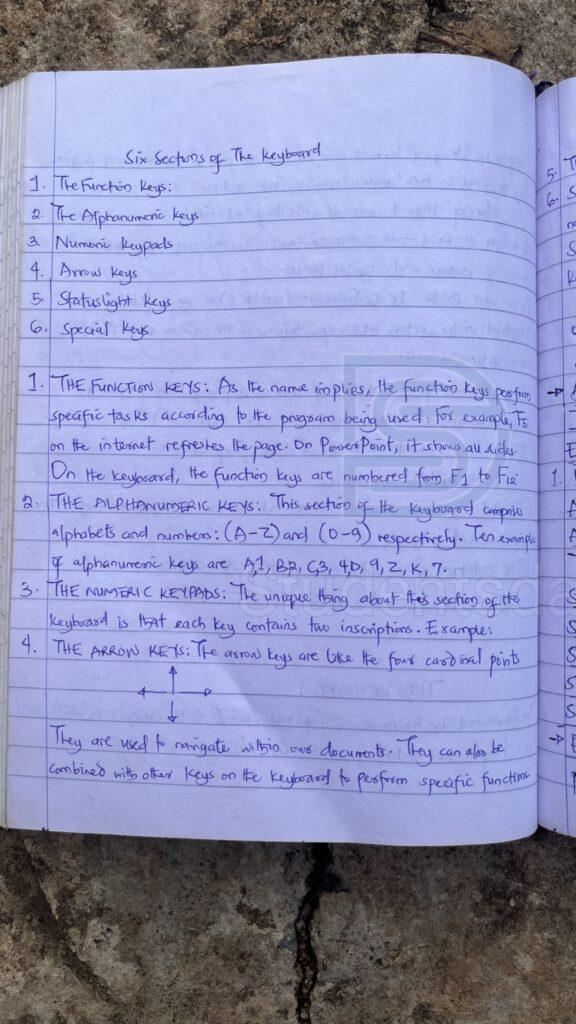 Six Sections of The Keyboard
1. The Function Keys:
2. The Alphanumeric Keys
3. Numeric Keypads
4. Arrow Keys
5. Statuslight Keys
6. Special Keys
1. THE FUNCTION KEYS: As the name implies, the function keys perform
specific tasks according to the program being used. For example, F5
on the internet refreshes the page. On PowerPoint, it shows all slides.
On the keyboard, the function keys are numbered from F1 to F12.
2. THE ALPHANUMERIC KEYS: This section of the keyboard comprises
alphabets and numbers: (A-Z) and (0-9) respectively. Ten example
of alphanumeric keys are A,1, B,2, C,3, 4D, 9, Z, K, 7.
3. THE NUMERIC KEYPADS: The unique thing about this section of the
keyboard is that each key contains two inscriptions. Example:
4. THE ARROW KEYS: The arrow keys are like the four cardinal points
They are used to navigate within our documents. They can also be
combined with other keys on the keyboard to perform specific functions
5.
6.
1.